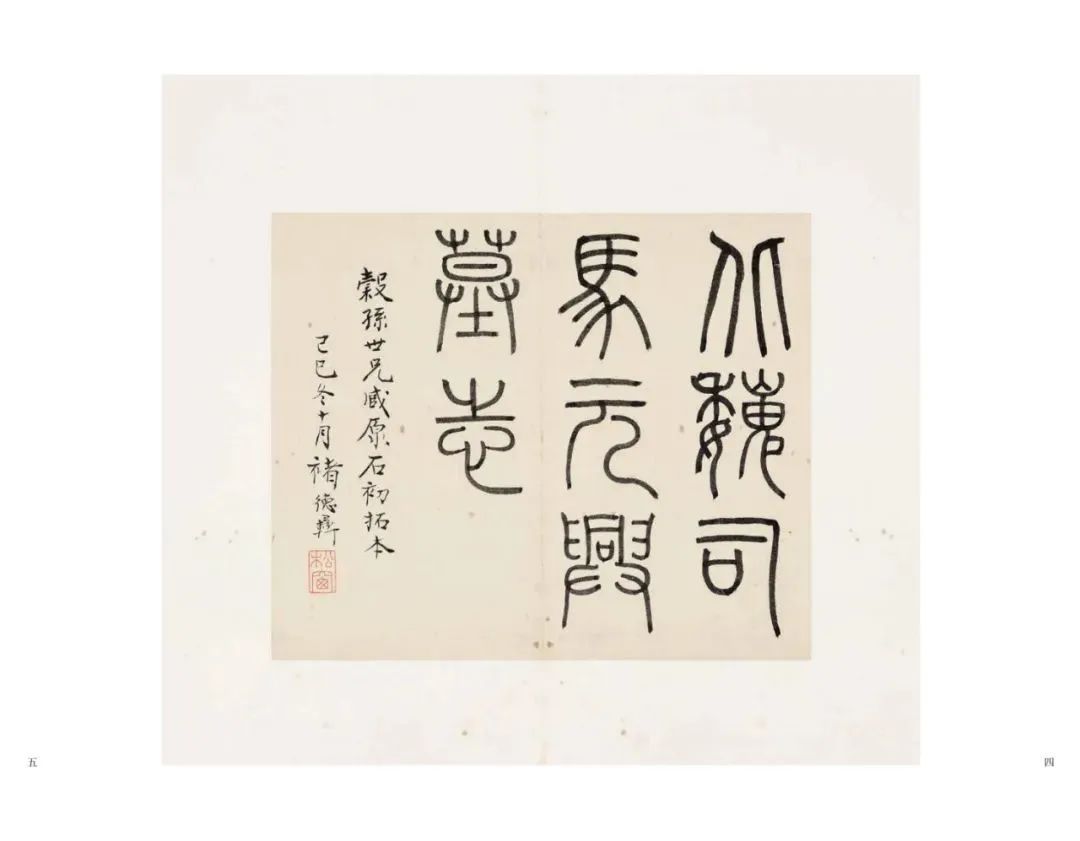 北魏司
馬元興
墓志
穀孫世兄臧原石初拓本
己巳冬十月褚德彝
松窗
五
四